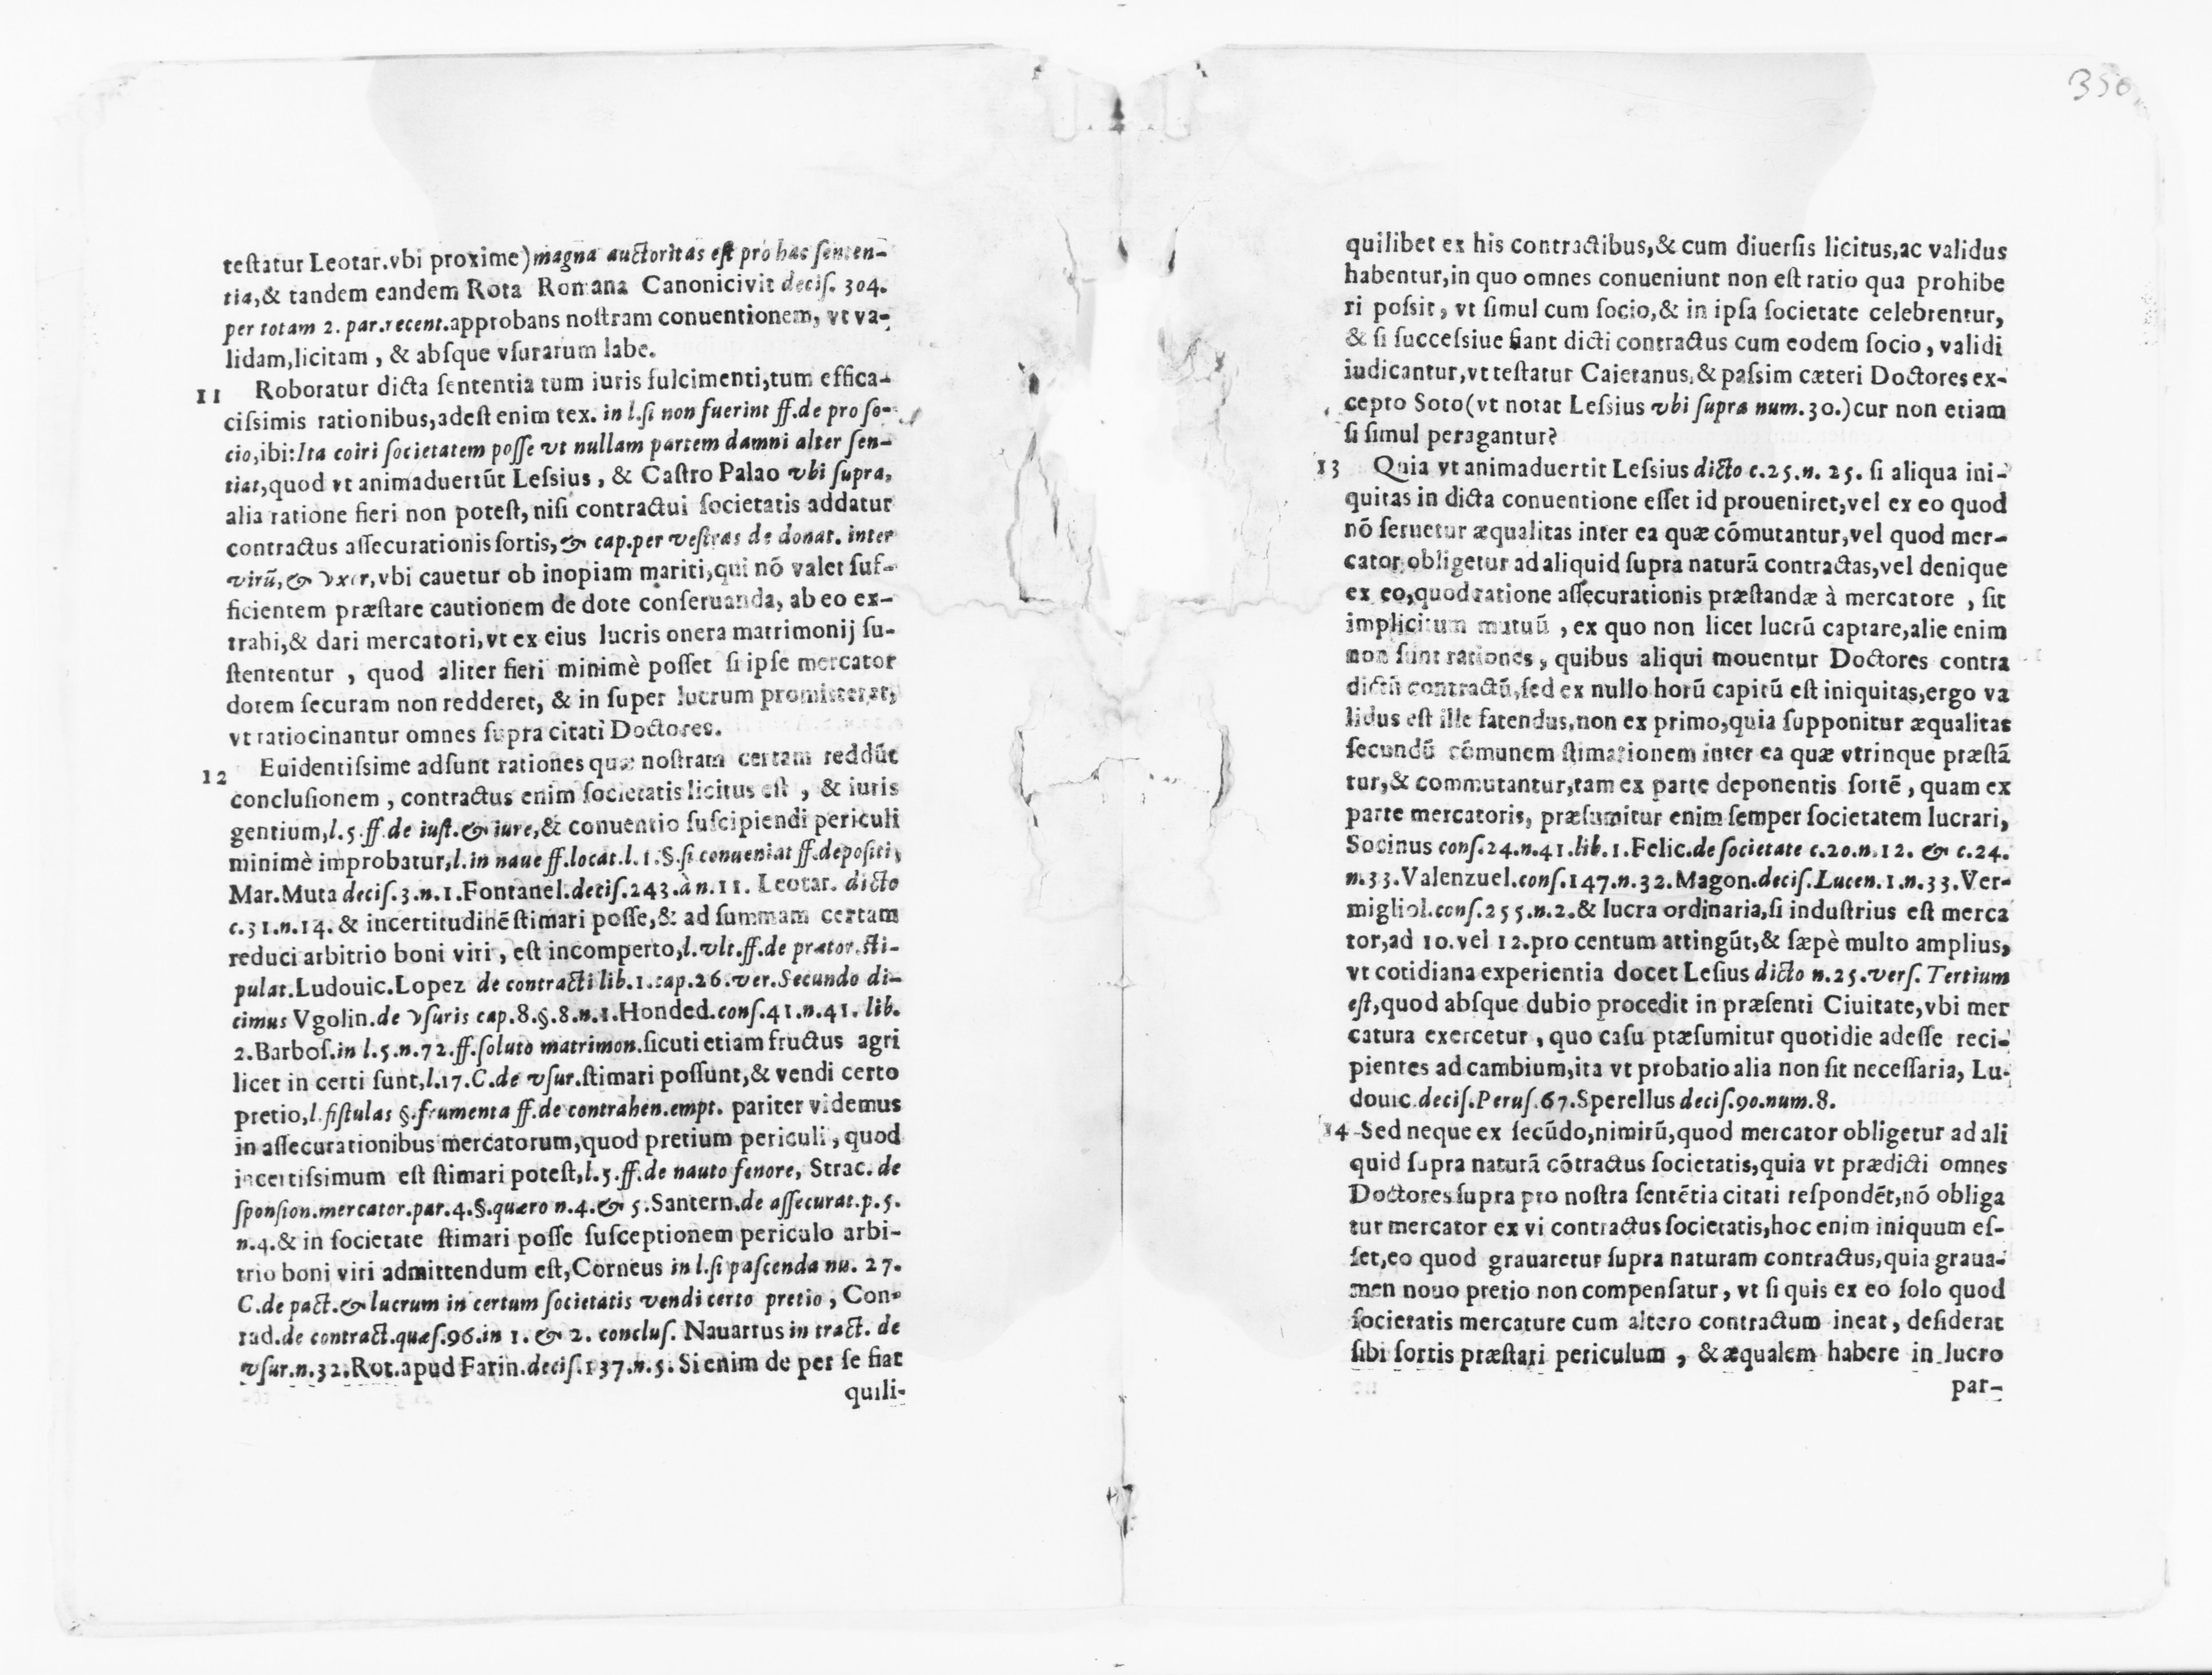 testatur Leotar.vbi proxime)magna auctoritas est pro hac senten-
tia,& tandem eandem Rota Romana Canonicivit decis. 304.
per totam 2. par.recent.approbans nostram conuentionem, vt va-
lidam,licitam , & absque vsurarum labe.
11 Roboratur dicta sententia tum iuris fulcimenti,tum effica-
cissimis rationibus,adest enim tex. in l.si non fuerint ff.de pro so-
cio,ibi:Ita coiri societatem posse vt nullam partem damni alter sen-
tiat,quod vt animaduertūt Lessius , & Castro Palao vbi supra,
alia ratione fieri non potest, nisi contractui societatis addatur
contractus assecurationis sortis,& cap.per vestras de donat. inter
virū,& vxor,vbi cauetur ob inopiam mariti,qui nō valet suf-
ficientem præstare cautionem de dote conseruanda, ab eo ex-
trahi,& dari mercatori,vt ex eius lucris onera matrimonij su-
stentur , quod aliter fieri minimè posset si ipse mercator
dotem securam non redderet, & in super lucrum promitteret,
vt ratiocinantur omnes supra citati Doctores.
12 Euidentissime adsunt rationes quæ nostram certam reddūt
conclusionem , contractus enim societatis licitus est , & iuris
gentium,l.5.ff.de iust.& iure,& conuentio suscipiendi periculi
minimè improbatur,l.in naue ff.locat.l.1.§.si conueniat ff.depositi,
Mar.Muta decis.3.n.1.Fontanel.decis.243.à n.11. Leotar. dicto
c.31.n.14. & incertitudinē stimari posse,& ad summam certam
reduci arbitrio boni viri , est incomperto,l.vlt.ff.de prætor.sti-
pulat.Ludouic.Lopez de contracti lib.1.cap.26.ver.Secundo di-
cimus Vgolin.de vsuris cap.8.§.8.n.1.Honded.cons.41.n.41. lib.
2.Barbos.in l.5.n.72.ff.soluto matrimon.sicuti etiam fructus agri
licet in certi sunt,l.17.C.de vsur.stimari possunt,& vendi certo
pretio,l.fistulas §.frumenta ff.de contrahen.empt. pariter videmus
in assecurationibus mercatorum,quod pretium periculi , quod
incertissimum est stimari potest,l.5.ff.de nauto fenore, Strac. de
sponsion.mercator.par.4.§.quæro n.4.& 5.Santern.de assecurat.p.5.
n.4.& in societate stimari posse susceptionem periculo arbi-
trio boni viri admittendum est,Corneus in l.si pascenda nu. 27.
C.de pact.& lucrum in certum societatis vendi certo pretio , Con-
rad.de contract.quæs.96.in 1. & 2. conclus. Nauartus in tract. de
vsur.n.32.Rot.apud Farin.decis.137.n.5.Si enim de per se fiat
quili-
350
quilibet ex his contractibus,& cum diuersis licitus,ac validus
habentur,in quo omnes conueniunt non est ratio qua prohibe
ri possit, vt simul cum socio,& in ipsa societate celebrentur,
& si successiue fiant dicti contractus cum eodem socio , validi
iudicantur,vt testatur Caietanus,& passim cæteri Doctores ex-
cepto Soto(vt notat Lessius vbi supra num.30.)cur non etiam
si simul peragantur?
13 Quia vt animaduertit Lessius dicto c.25.n. 25. si aliqua ini-
quitas in dicta conuentione esset id proueniret,vel ex eo quod
nō seruetur æqualitas inter ea quæ cōmutantur,vel quod mer-
cator obligetur ad aliquid supra naturā contractas,vel denique
ex eo,quod ratione assecurationis præstandæ à mercatore , sit
implicitum mutuū , ex quo non licet lucrū captare,alie enim
non sunt rationes , quibus aliqui mouentur Doctores contra
dictū contractū,sed ex nullo horū capitū est iniquitas,ergo va
lidus est ille fatendus,non ex primo,quia supponitur æqualitas
secundū cōmunem stimationem inter ea quæ vtrinque præstā
tur,& commutantur,tam ex parte deponentis sortē , quam ex
parte mercatoris, præsumitur enim semper societatem lucrari,
Socinus cons.24.n.41.lib.1.Felic.de societate c.20.n.12. & c.24.
n.33.Valenzuel.cons.147.n.32.Magon.decis.Lucen.1.n.33.Ver-
migliol.cons.255.n.2.& lucra ordinaria,si industrius est merca
tor,ad 10.vel 12.pro centum attingūt,& sæpè multo amplius,
vt cotidiana experientia docet Lesius dicto n.25.vers. Tertium
est,quod absque dubio procedit in præsenti Ciuitate,vbi mer
catura exercetur , quo casu ptæsumitur quotidie adesse reci-
pientes ad cambium,ita vt probatio alia non sit necessaria, Lu-
douic.decis.Perus.67.Sperellus decis.90.num.8.
14 Sed neque ex secūdo,nimirū,quod mercator obligetur ad ali
quid supra naturā cōtractus societatis,quia vt prædicti omnes
Doctores supra pro nostra sentētia citati respondēt,nō obliga
tur mercator ex vi contractus societatis,hoc enim iniquum es-
set,eo quod grauaretur supra naturam contractus,quia graua-
men nouo pretio non compensatur , vt si quis ex eo solo quod
societatis mercature cum altero contractum ineat , desiderat
sibi sortis præstari periculum , & æqualem habere in lucro
par-